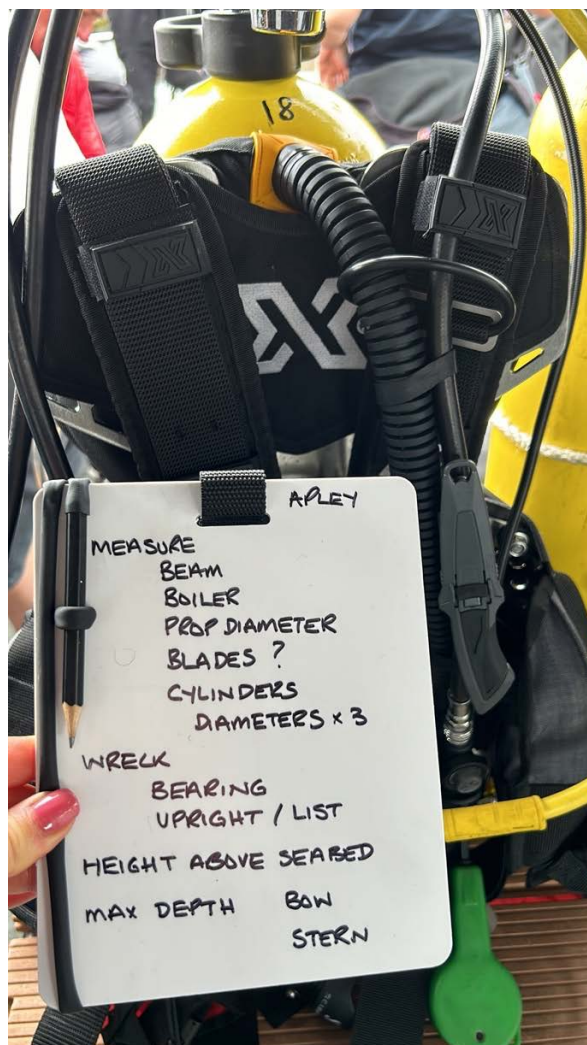 18
APLEY
MEASURE
BEAM
BOILER
PROP DIAMETER
BLADES ?
CYLINDERS
DIAMETERS x 3
WRECK
BEARING
UPRIGHT / LIST
HEIGHT ABOVE SEABED
MAX DEPTH BOW
STERN